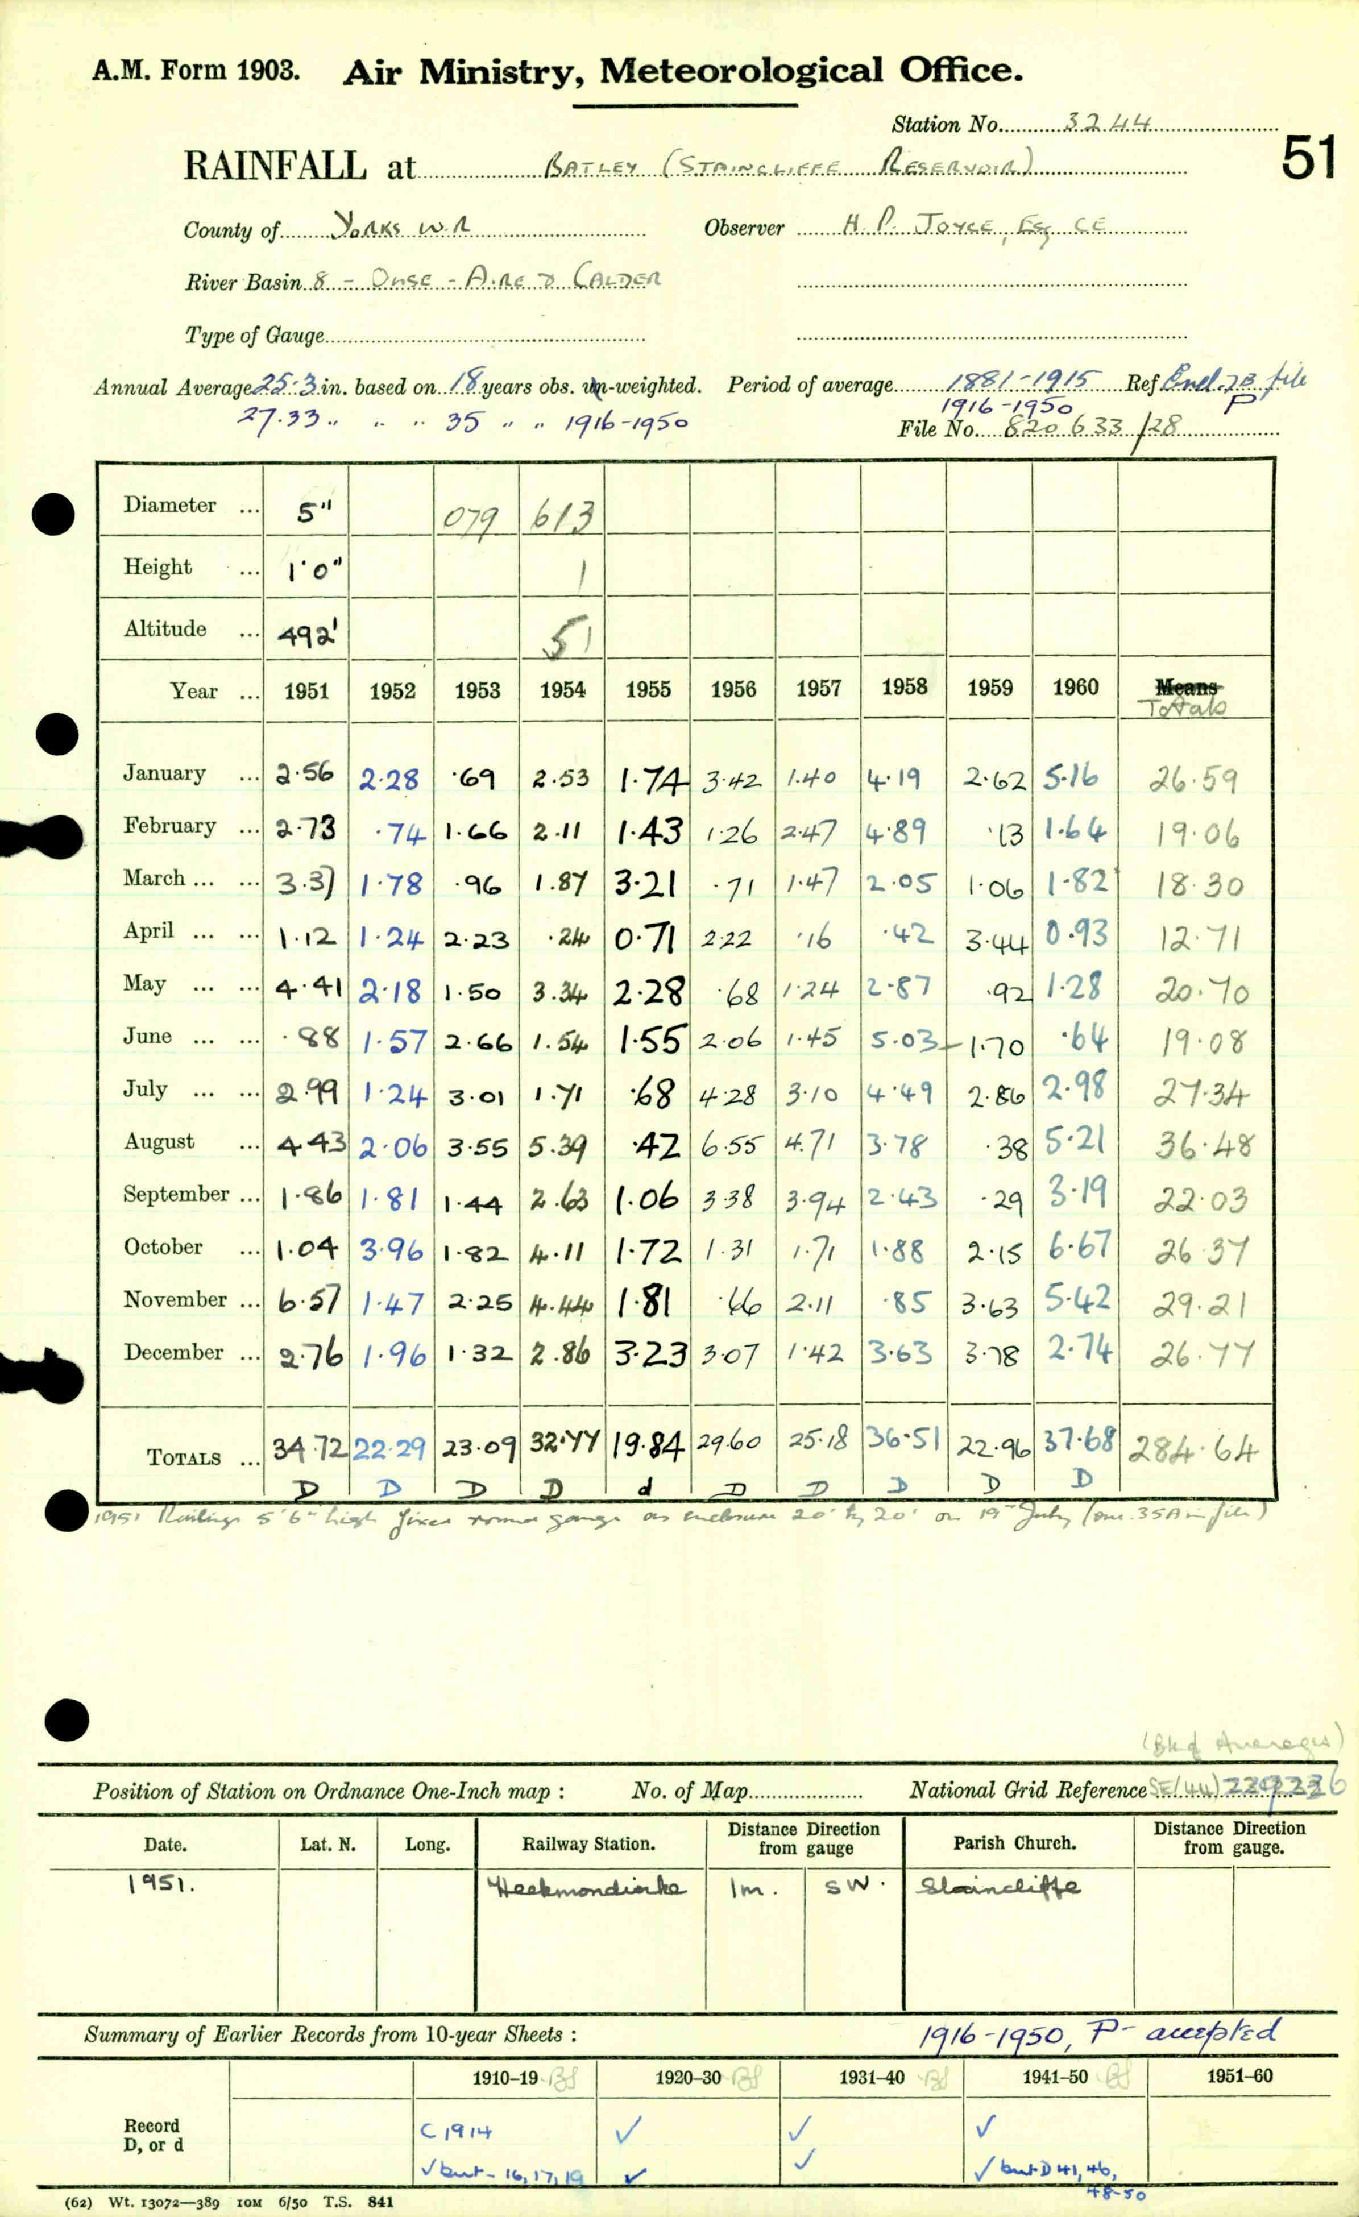 A.M. Form 1903. Air Ministry, Meteorological Office.
Station No. 3244
51
RAINFALL at BATLEY (STAINCLIFFE RESERVOIR)
County of YORKS W.R Observer H. P. JOYCE, Esq CE
River Basin 8 - OUSE - AIRE & CALDER
Type of Gauge
Annual Average 25.3 in. based on 18 years obs. un-weighted. Period of average 1881-1915 Ref Encl. 7B file
27.33 " " " 35 " " 1916-1950 1916-1950 P
File No. 820633/28
Diameter ... 5" 079 613
Height ... 1'0" 1
Altitude ... 492' 51
Year ... 1951 1952 1953 1954 1955 1956 1957 1958 1959 1960 Means
Totals
January ... 2.56 2.28 .69 2.53 1.74 3.42 1.40 4.19 2.62 5.16 26.59
February ... 2.73 .74 1.66 2.11 1.43 1.26 2.47 4.89 .13 1.64 19.06
March ... ... 3.37 1.78 .96 1.87 3.21 .71 1.47 2.05 1.06 1.82 18.30
April ... ... 1.12 1.24 2.23 .24 0.71 2.22 .16 .42 3.44 0.93 12.71
May ... ... 4.41 2.18 1.50 3.34 2.28 .68 1.24 2.87 .92 1.28 20.70
June ... ... .88 1.57 2.66 1.54 1.55 2.06 1.45 5.03 1.70 .64 19.08
July ... ... 2.99 1.24 3.01 1.71 .68 4.28 3.10 4.49 2.86 2.98 27.34
August ... 4.43 2.06 3.55 5.39 .42 6.55 4.71 3.78 .38 5.21 36.48
September ... 1.86 1.81 1.44 2.63 1.06 3.38 3.94 2.43 .29 3.19 22.03
October ... 1.04 3.96 1.82 4.11 1.72 1.31 1.71 1.88 2.15 6.67 26.37
November ... 6.57 1.47 2.25 4.44 1.81 .66 2.11 .85 3.63 5.42 29.21
December ... 2.76 1.96 1.32 2.86 3.23 3.07 1.42 3.63 3.78 2.74 26.77
TOTALS ... 34.72 22.29 23.09 32.77 19.84 29.60 25.18 36.51 22.96 37.68 284.64
D D D D d D D D D D
1951 Railings 5'6" high fixed round gauge as enclosure 20' by 20' on 19th July (enc. 35A in file)
(Bkd Averages)
Position of Station on Ordnance One-Inch map : No. of Map National Grid Reference SE(44)
Date. Lat. N. Long. Railway Station. Distance from Direction gauge Parish Church. Distance from Direction gauge.
1951. Heckmondwike 1m. SW. Staincliffe
Summary of Earlier Records from 10-year Sheets : 1916-1950, P- accepted
1910–19 1920–30 1931–40 1941–50 1951–60
Record C 1914 ✓ ✓ ✓
D, or d ✓ but - 16, 17, 19 ✓ ✓ ✓ but D 41, 46,
48-50
(62) Wt. 13072—389 10M 6/50 T.S. 841